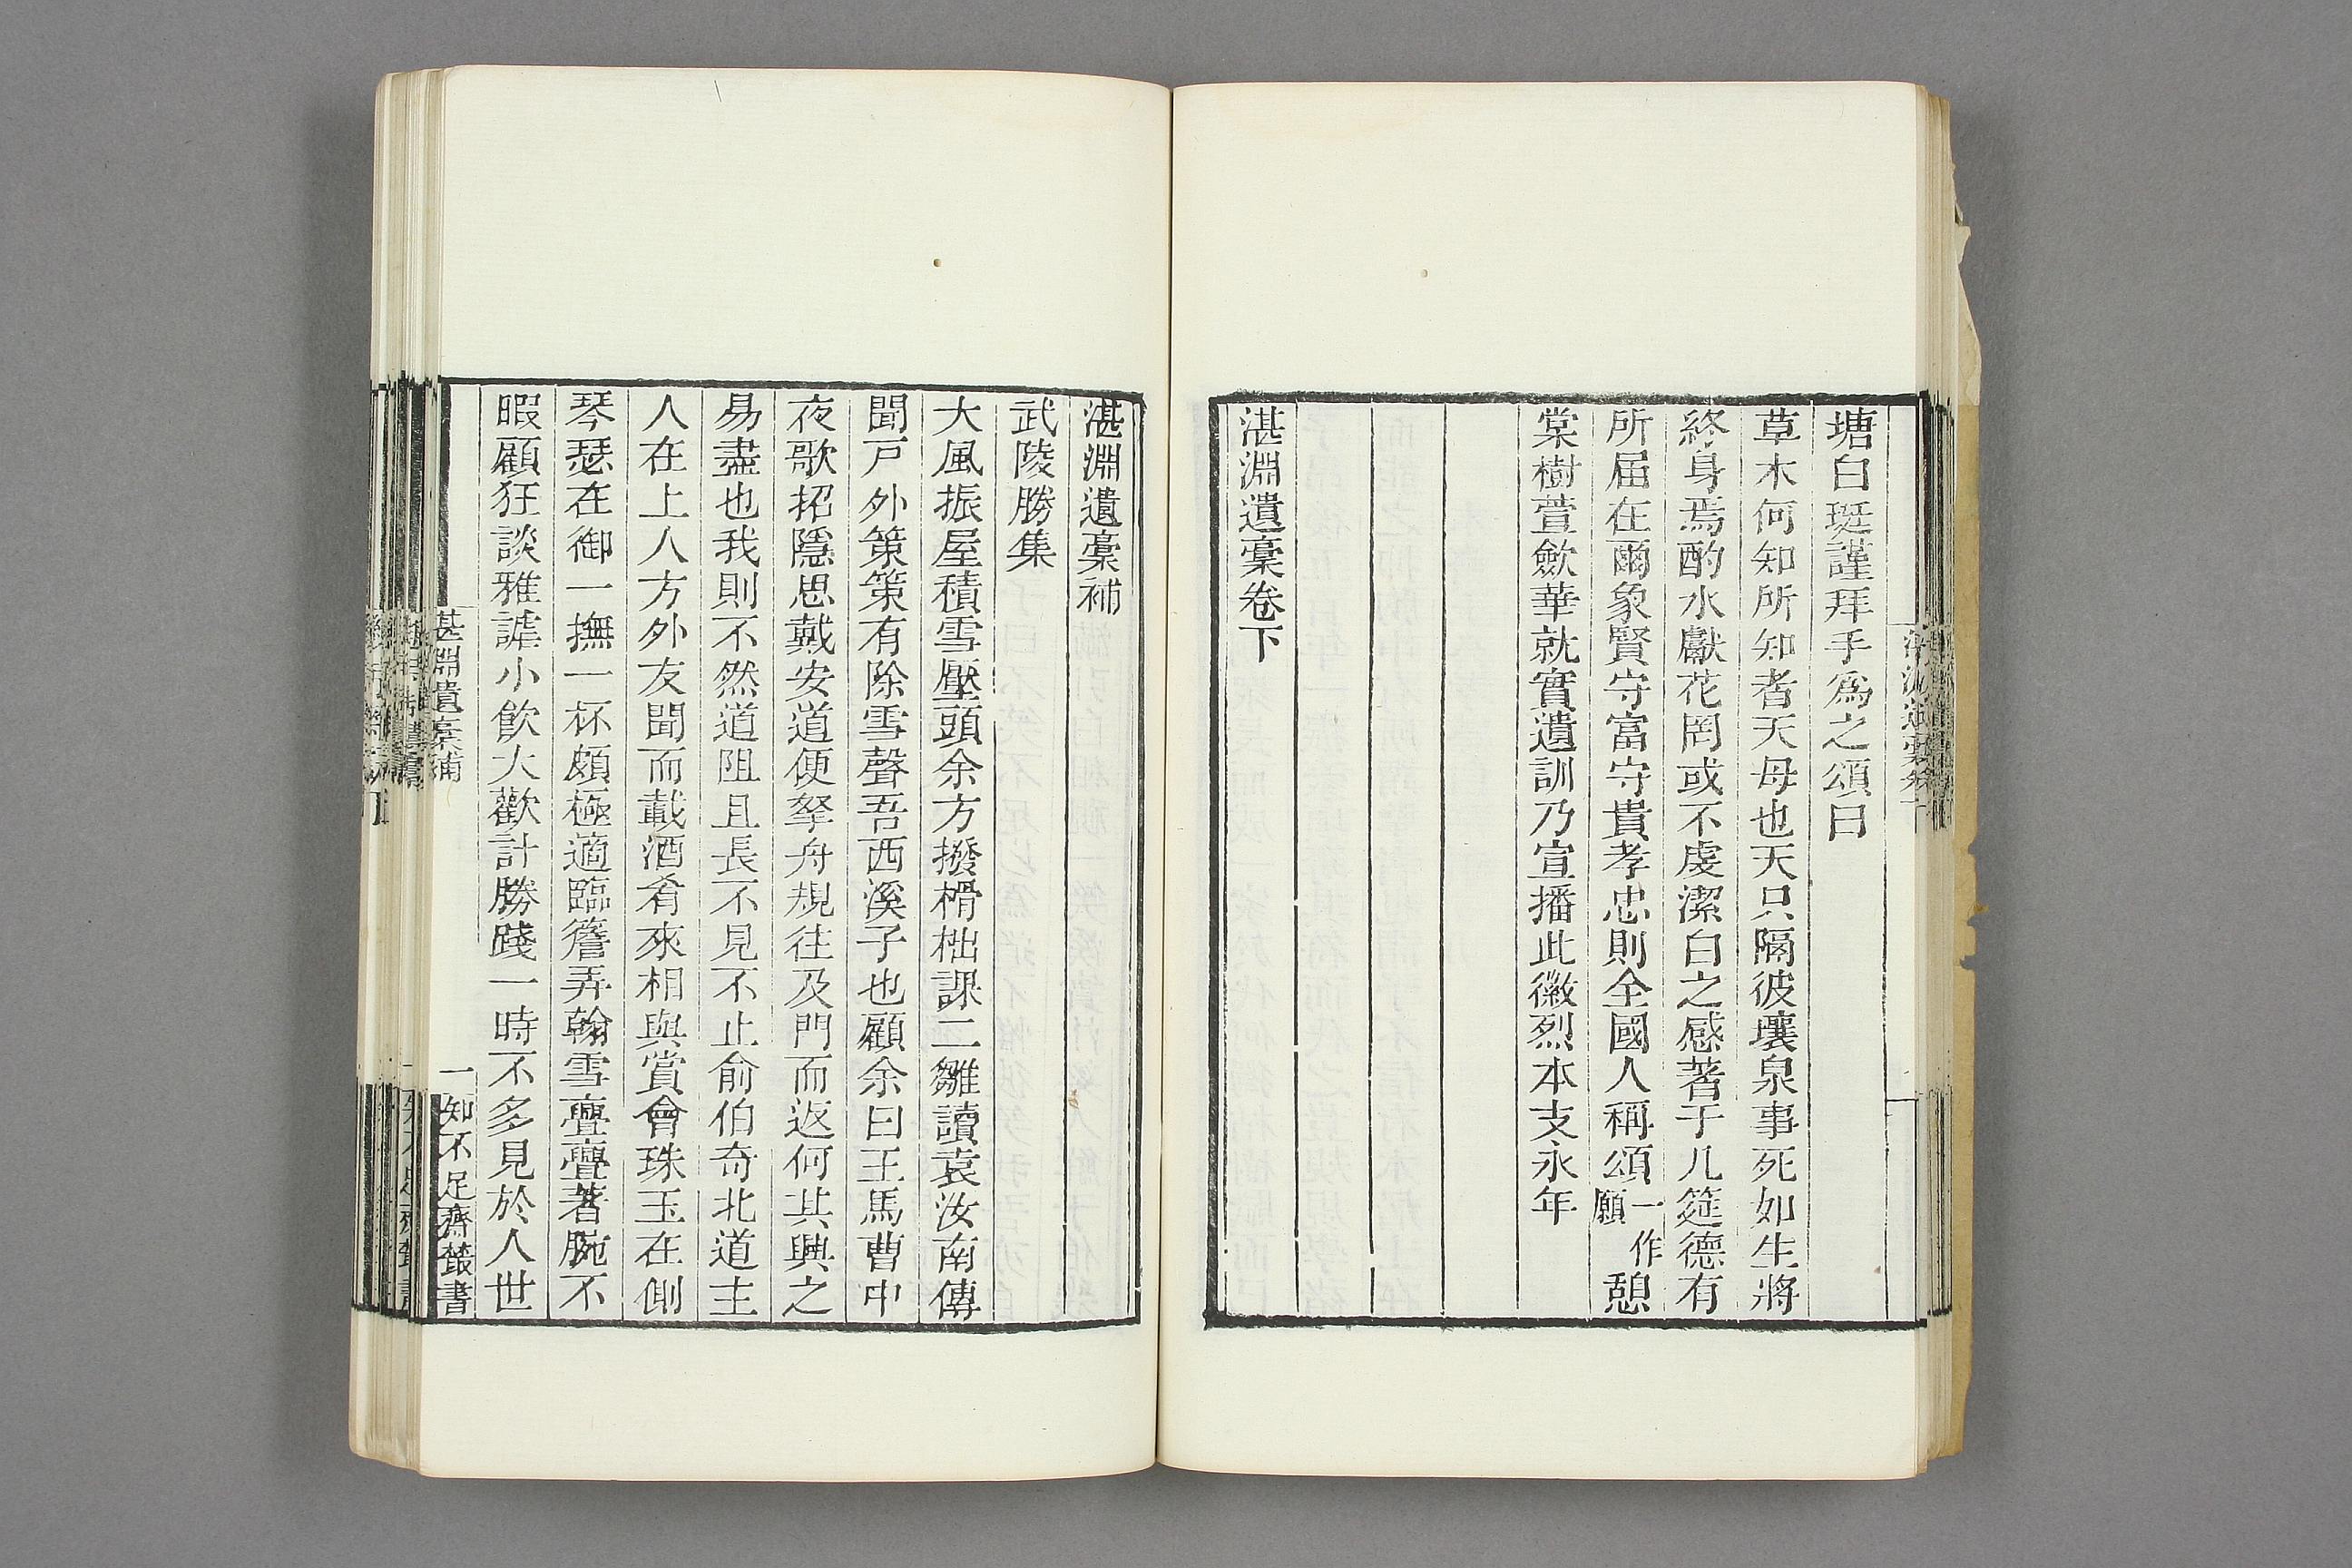 塘白珽謹拜手爲之頌曰
草木何知所知者天母也天只隔彼壤泉事死如生將
終身焉酌水獻花罔或不虔潔白之感著于几筵德有
所届在爾象賢守富守貴孝忠則全國人稱頌一作願憩
棠樹萱歛華就實遺訓乃宣播此徽烈本支永年
湛淵遺稾卷下
湛淵遺稾補
武陵勝集
大風振屋積雪壓頭余方撥榾柮課二雛讀袁汝南傳
聞戸外策策有除雪聲吾西溪子也顧余曰王馬曹中
夜歌招隱思戴安道便拏舟規往及門而返何其興之
易盡也我則不然道阻且長不見不止俞伯奇北道主
人在上人方外友聞而載酒肴來相與賞會珠玉在側
琴瑟在御一撫一杯頗極適臨簷弄翰雪亹亹著腕不
暇顧狂談雅謔小飮大歡計勝踐一時不多見於人世
湛淵遺稾補
一
知不足齋叢書